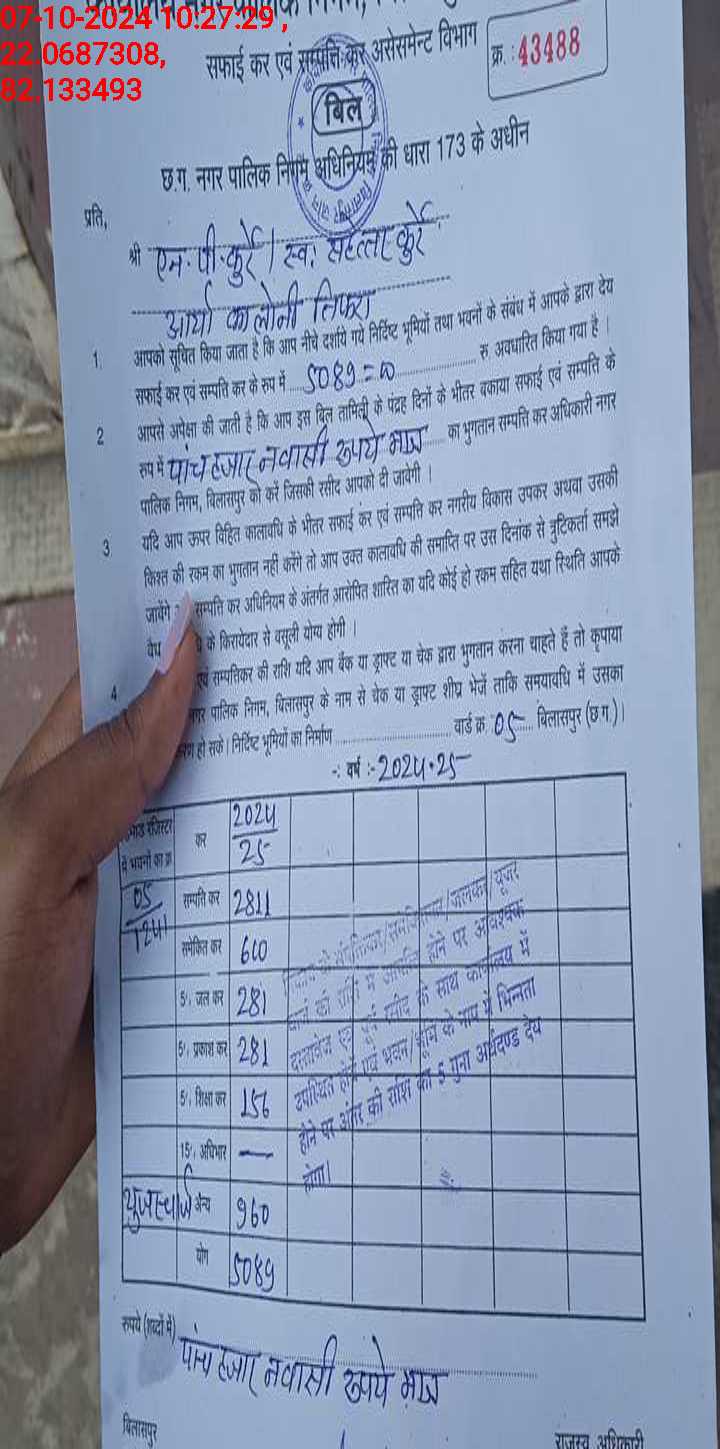 07-10-2024 10:27:29,
22.0687308,
82.133493
सफाई कर एवं सम्पत्ति कर असेसमेन्ट विभाग
क्र. : 43488
बिल
छ.ग. नगर पालिक निगम अधिनियम की धारा 173 के अधीन
प्रति,
श्री एन. पी. कुर्रे / स्व. कुर्रे
आर्या कालोनी तिफरा
1. आपको सूचित किया जाता है कि आप नीचे दर्शाये गये निर्दिष्ट भूमियों तथा भवनों के संबंध में आपके द्वारा देय
सफाई कर एवं सम्पति कर के रूप में 5089=00 रु अवधारित किया गया है।
2 आपसे अपेक्षा की जाती है कि आप इस बिल तामिली के पंद्रह दिनों के भीतर बकाया सफाई एवं सम्पति के
रूप में पांच हजार नवासी रूपये मात्र का भुगतान सम्पति कर अधिकारी नगर
पालिक निगम, बिलासपुर को करें जिसकी रसीद आपको दी जावेगी।
3 यदि आप ऊपर विहित कालावधि के भीतर सफाई कर एवं सम्पति कर नगरीय विकास उपकर अथवा उसकी
किश्त की रकम का भुगतान नहीं करेंगे तो आप उक्त कालावधि की समाप्ति पर उस दिनांक से त्रुटिकर्ता समझे
जावेंगे सम्पति कर अधिनियम के अंतर्गत आरोपित शास्ति का यदि कोई हो रकम सहित यथा स्थिति आपके
के किरायेदार से वसूली योग्य होगी।
4 एवं सम्पत्तिकर की राशि यदि आप बैंक या ड्राफ्ट या चेक द्वारा भुगतान करना चाहते हैं तो कृपाया
नगर पालिक निगम, बिलासपुर के नाम से चेक या ड्राफ्ट शीघ्र भेजें ताकि समयावधि में उसका
हो सके। निर्दिष्ट भूमियों का निर्माण वार्ड क्र 05 बिलासपुर (छ ग.)।
-: वर्ष :- 2024-25
रजिस्टर
में भवनों का क्र कर 2024/25
05/1241 सम्पति कर 2811
समेकित कर 600
5% जल कर 281
5% प्रकाश कर 281
5% शिक्षा कर 156
15% अधिभार —
यूजरचार्ज अन्य 960
योग 5089
की राशि में आपत्ति होने पर आवश्यक
दस्तावेज एवं पूर्व रसीद के साथ कार्यालय में
उपस्थित होवें एवं भवन/भूमि के नाप में भिन्नता
होने पर अंतर की राशि का 5 गुना अर्थदण्ड देय
होगा।
रूपये (शब्दों में) पांच हजार नवासी रूपये मात्र
बिलासपुर
राजस्व अधिकारी